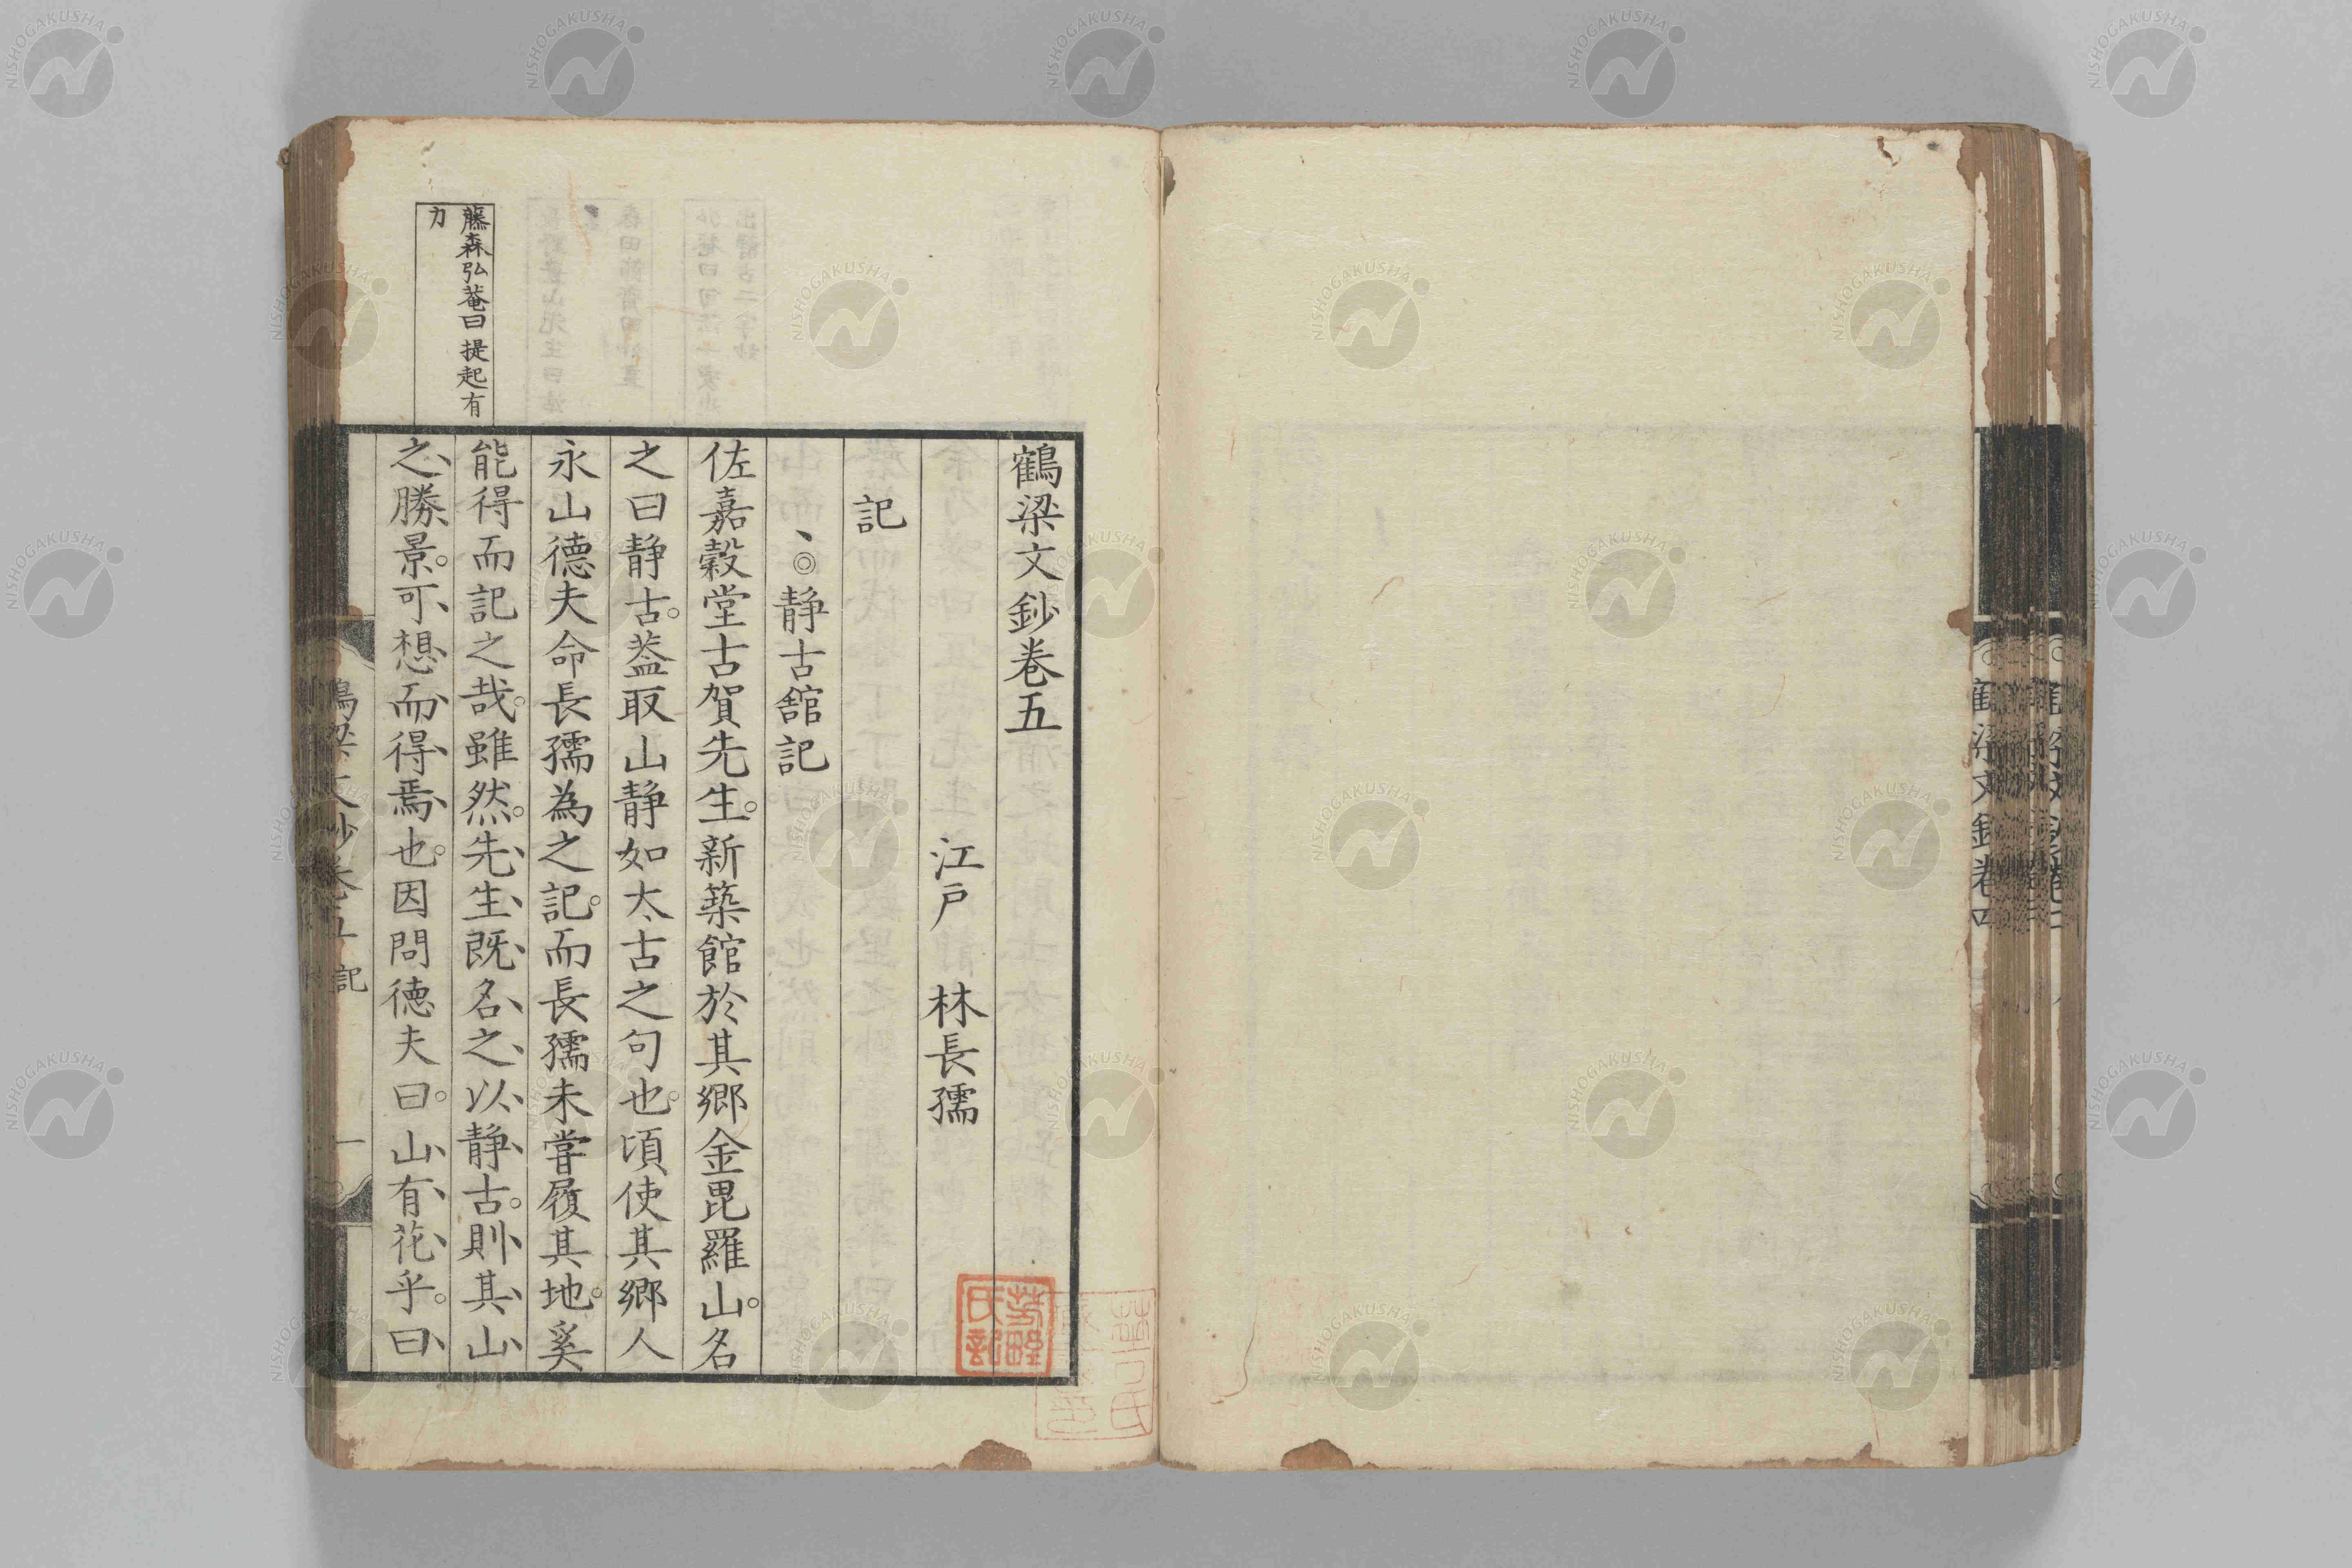 鶴梁文鈔卷五
江戸 林長孺
記
、◎静古舘記
佐嘉穀堂古賀先生。新築館於其郷金毘羅山。名
之曰静古。葢取山静如太古之句也。頃使其郷人
永山德夫命長孺為之記。而長孺未嘗履其地。奚
能得而記之哉。雖然。先生既名之以静古。則其山
之勝景。可想而得焉也。因問德夫曰。山有花乎。曰
藤森弘菴曰提起有
力
鶴梁文鈔卷五 記 一
鶴梁文鈔卷四
NISHOGAKUSHA